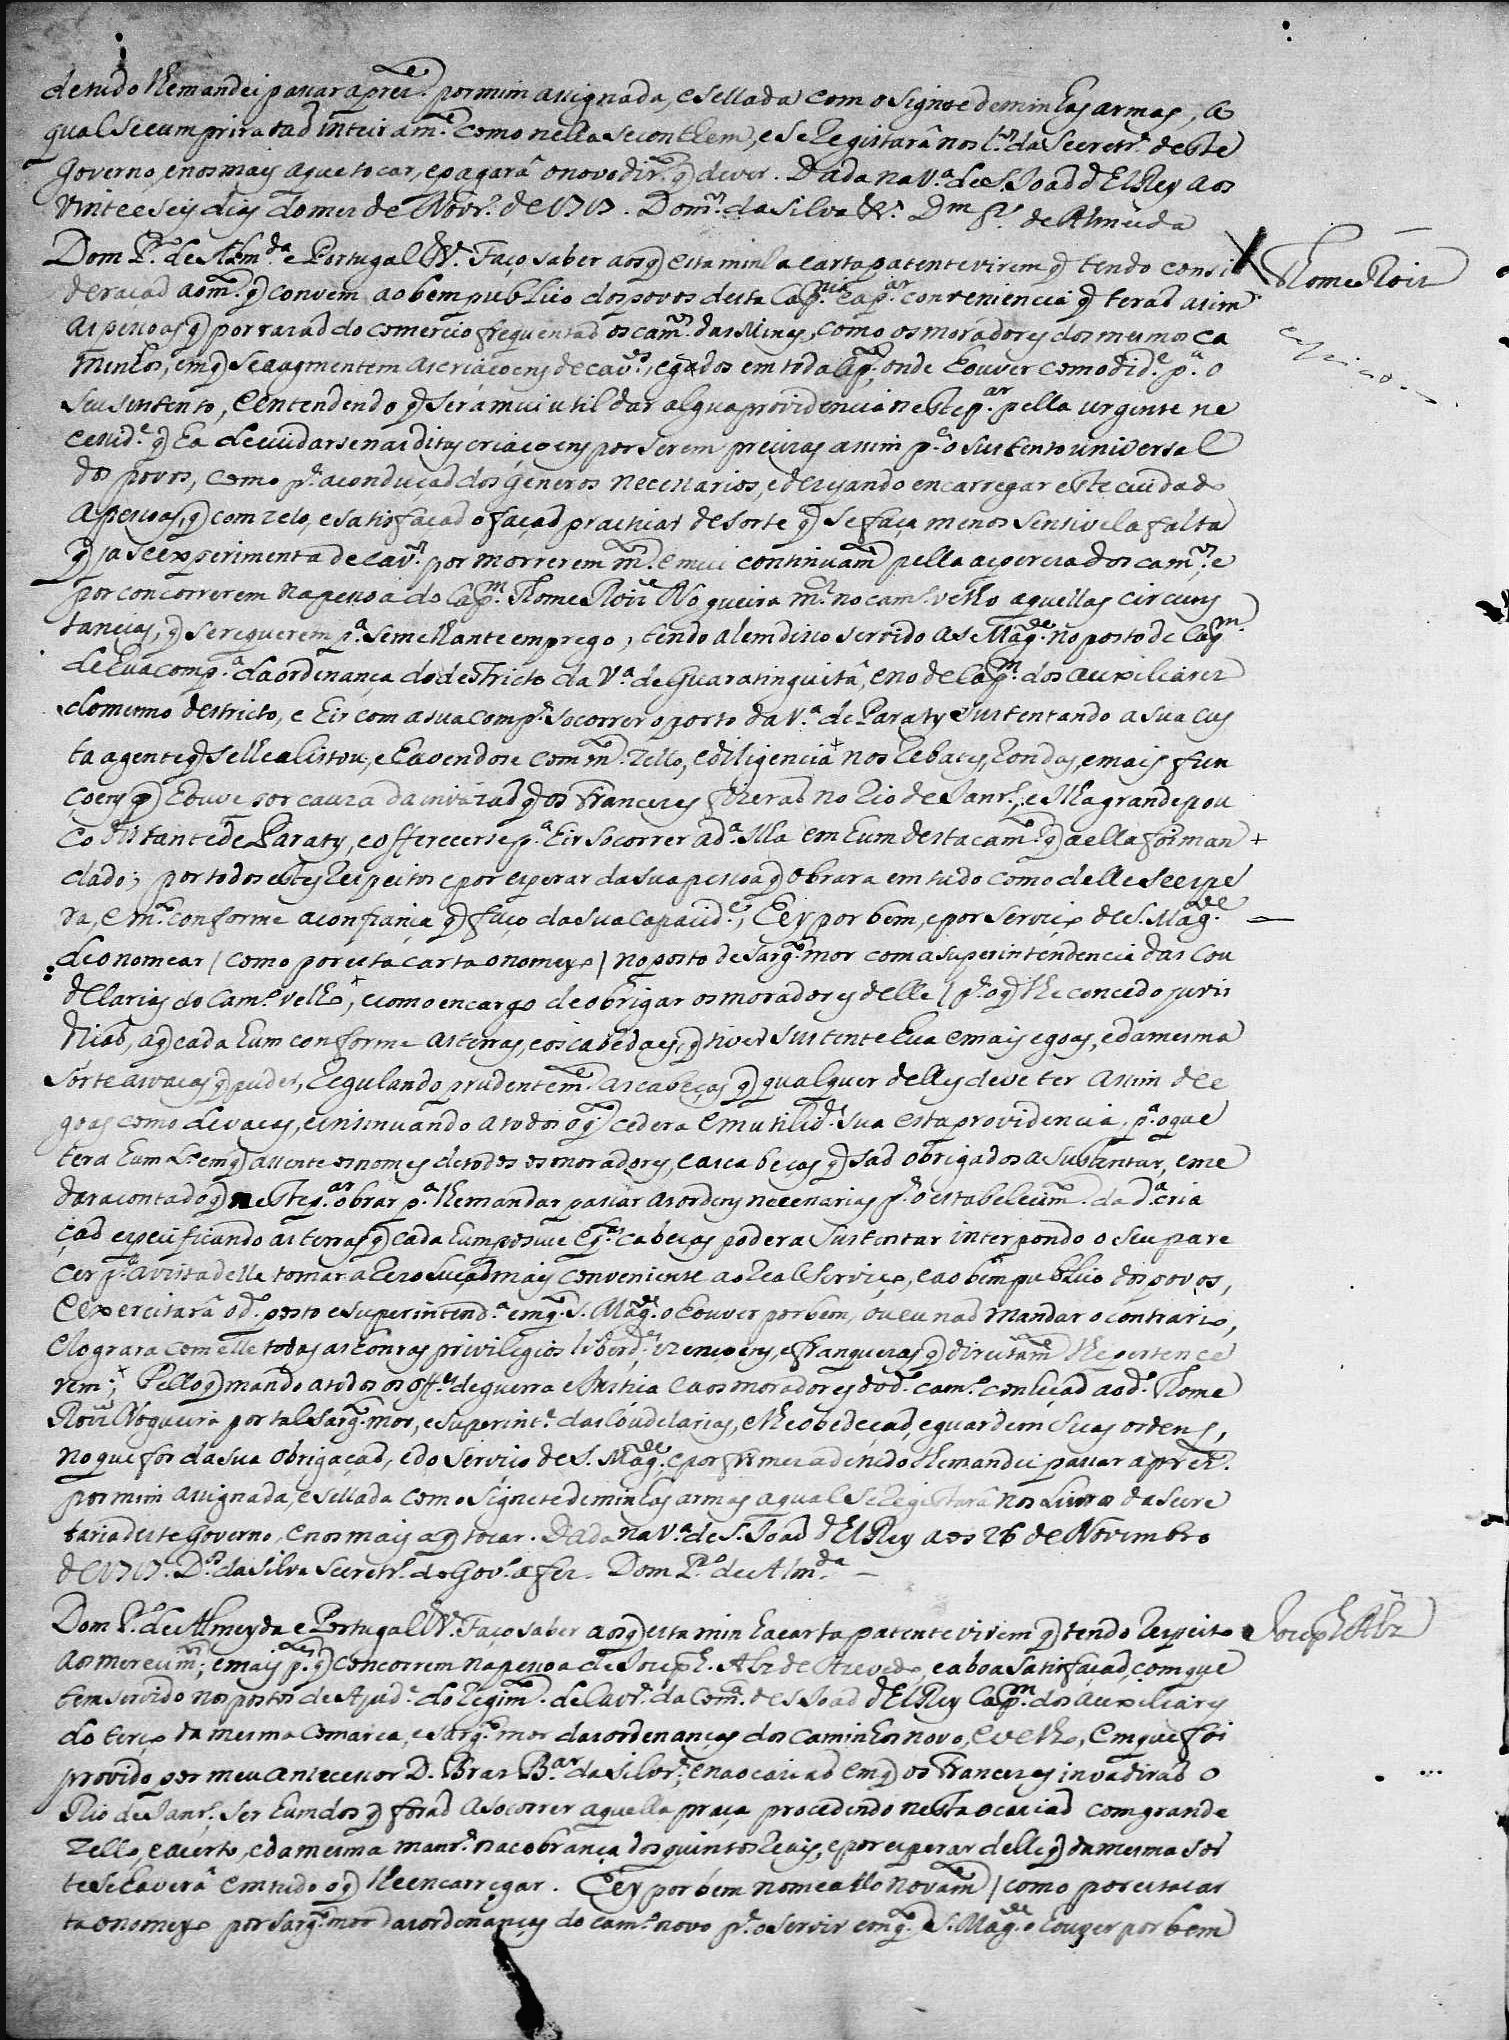 de tudo lhe mandei passar a prez.te por mim assignada, e sellada com o signete de minhas armas, a
qual se cumprirá tad inteiram.te como nella se conthem, e se Registará nos L.os da Secretr.ª deste
Governo, e nos mais a que tocar, e pagará o novo dir.to q̃ dever. Dada na V.ª de S. Joaõ d'ElRey aos
vinte e seis dias do mes de Novr.º de 1717. Dom.os da Silva &.ª Dm P.º de Almeida
Dom P.º de Alm.da e Portugal &.ª Faço saber aos q̃ esta minha carta patente virem q̃ tendo consi
deraçaõ ao m.to q̃ convem ao bem publico dos povos desta Cap.nia e a p.ar conveniencia q̃ teraõ assim
as pessoas q̃ por razaõ do comercio frequentaõ os cam.os das Minas, como os moradores dos mesmos ca
minhos, em q̃ se augmentem as criaçoens de cav.os, e gados em toda a p.te onde houver comodid.e p.ª o
seu sustento, e entendendo q̃ será mui util dar algua providencia neste p.ar pella urgente ne
cessid.e q̃ ha de cuidarse nas ditas criaçoens por serem precizas assim p.ª o sustento universal
dos povos, como p.ª a conduçaõ dos generos necessarios, e dezejando encarregar este cuidado
a pessoas, q̃ com zelo, e satisfaçaõ o façaõ practicar de sorte q̃ se faça menos sensivel a falta
q̃ ja se experimenta de cav.os por morrerem m.tos e mui continuam.te pella aspereza dos cam.os, e
por concorrerem na pessoa do Cap.m Thome Roiz Nogueira m.or no cam.º velho aquellas circuns
tancias, q̃ se requerem p.ª semelhante emprego, tendo alem disso servido a S. Mag.de no posto de Cap.m
de hua comp.ª da ordenança do destricto da V.ª de Guaratinguitâ, e no de Cap.m dos auxiliares
do mesmo destricto, e hir com a sua comp.ª socorrer o porto da V.ª de Paraty sustentando a sua cus
ta a gente q̃ se lhe alistou, e havendose com m.to zello, e diligencia nos Rebates, Rondas, e mais fun
çoens q̃ houve por cauza da invazaõ q̃ os Francezes fizeraõ no Rio de Janr.º, e Ilha grande pou
co distante de Paraty, e offerecerse p.ª hir socorrer a d.ª Ilha em hum destacam.to q̃ a ella foi man
dado; por todos estes respeitos e por esperar da sua pessoa q̃ obrara em tudo como delle se espe
ra, e m.to conforme a confiança q̃ faço da sua capacid.e; Hey por bem, e por serviço de S. Mag.de
de o nomear / como por esta carta o nomeyo / no posto de Sarg.to mor com a superintendencia das Cou
delarias do Cam.º velho, e com o encargo de obrigar os moradores delle / p.ª o q̃ lhe concedo juris
diçaõ, a q̃ cada hum conforme as terras, e os cabedaes, q̃ tiver sustente hua e mais egoas, e da mesma
sorte as vacas q̃ puder, Regulando prudentem.te as cabeças q̃ qualquer delles deve ter assim de e
goas como de vacas, e insinuando a todos o q̃ cedera em utilid.e sua esta providencia, p.ª o que
tera hum L.º em q̃ assente os nomes de todos os moradores, e as cabeças q̃ saõ obrigados a sustentar, e me
dara conta do q̃ neste p.ar obrar p.ª lhe mandar passar as ordens necessarias p.ª o estabelecim.to da d.ª cria
çaõ especificando as terras q̃ cada hum possue e q.tas cabeças podera sustentar interpondo o seu pare
cer p.ª a vista delle tomar a Rezoluçaõ mais conveniente ao Real Serviço, e ao bem publico dos povos,
e exercitará o d.º posto e superintend.ª em q.to S. Mag.de o houver por bem, ou eu naõ mandar o contrario,
e lograra com elle todas as honras privilegios liberd.es izençoens, e franquezas q̃ direitam.te lhe pertence
rem; Pello q̃ mando a todos os off.es de guerra e Justiça e aos moradores do d.º cam.º conheçaõ ao d.º Thome
Roiz Nogueira por tal Sarg.to mor, e superint.e das Coudelarias, e lhe obedeçaõ, e guardem suas ordens,
no que for da sua obrigaçaõ, e do serviço de S. Mag.de, e por firmeza de tudo lhe mandei passar a prez.te
por mim assignada, e sellada com o Signete de minhas armas a qual se Registará nos Livros da Secre
taria deste Governo, e nos mais a q̃ tocar. Dada na V.ª de S. Joaõ d'ElRey aos 26 de Novembro
de 1717. D.os da Silva Secretr.º do Gov.º a fez. Dom P.º de Alm.da
Thome Roiz
Dom P.º de Almeyda e Portugal &.ª Faço saber aos q̃ esta minha carta patente virem q̃ tendo Respeito
aos merecim.tos, e mais p.tes q̃ concorrem na pessoa de Joseph Alz de Azevedo, e a boa satisfaçaõ, com que
tem servido nos postos de Ajud.e do Regim.to de Cavr.ª da Com.ca de S. Joaõ d'ElRey Cap.m dos auxiliares
do terço da mesma Comarca, e Sarg.to mor das ordenanças dos Caminhos novo, e velho, em que foi
provido por meu antecessor D. Bras B.ar da Silvr.ª, e na ocaziaõ em q̃ os Francezes invadiraõ o
Rio de Janr.º ser hum dos q̃ foraõ a socorrer aquella praça procedendo nesta ocaziaõ com grande
zello, e acerto, e da mesma manr.ª na cobrança dos quintos Reais, e por esperar delle q̃ da mesma sor
te se haverâ em tudo o q̃ lhe encarregar. Hey por bem nomeallo novam.te / como por esta car
ta o nomeyo por Sarg.to mor das ordenanças do cam.º novo p.ª o servir em q.to S. Mag.de o houver por bem
Joseph Alz